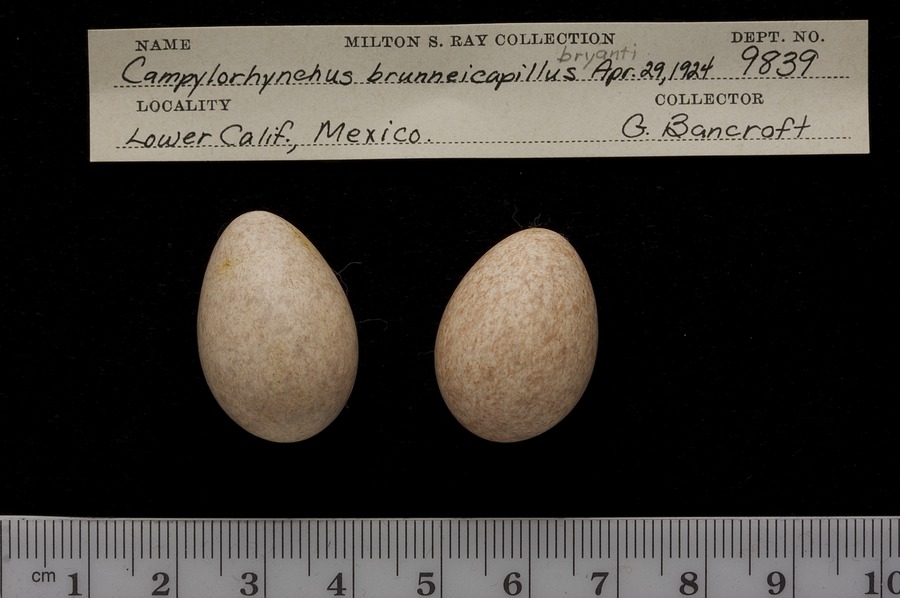 NAME MILTON S. RAY COLLECTION DEPT. NO.
bryanti
Campylorhynchus brunneicapillus Apr. 29, 1924 9839
LOCALITY COLLECTOR
Lower Calif., Mexico. G. Bancroft
cm 1 2 3 4 5 6 7 8 9 10